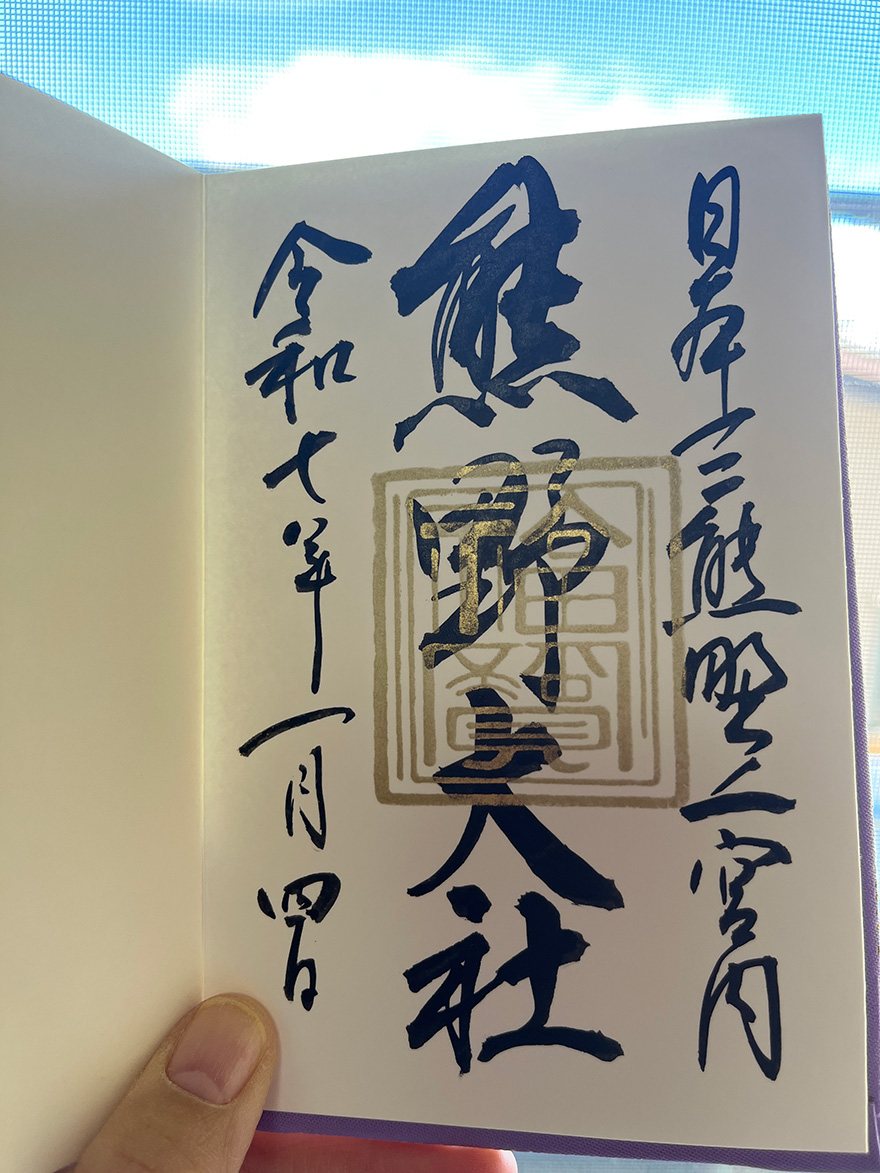 日本三熊野之宮内
熊野大社
令和七年一月四日